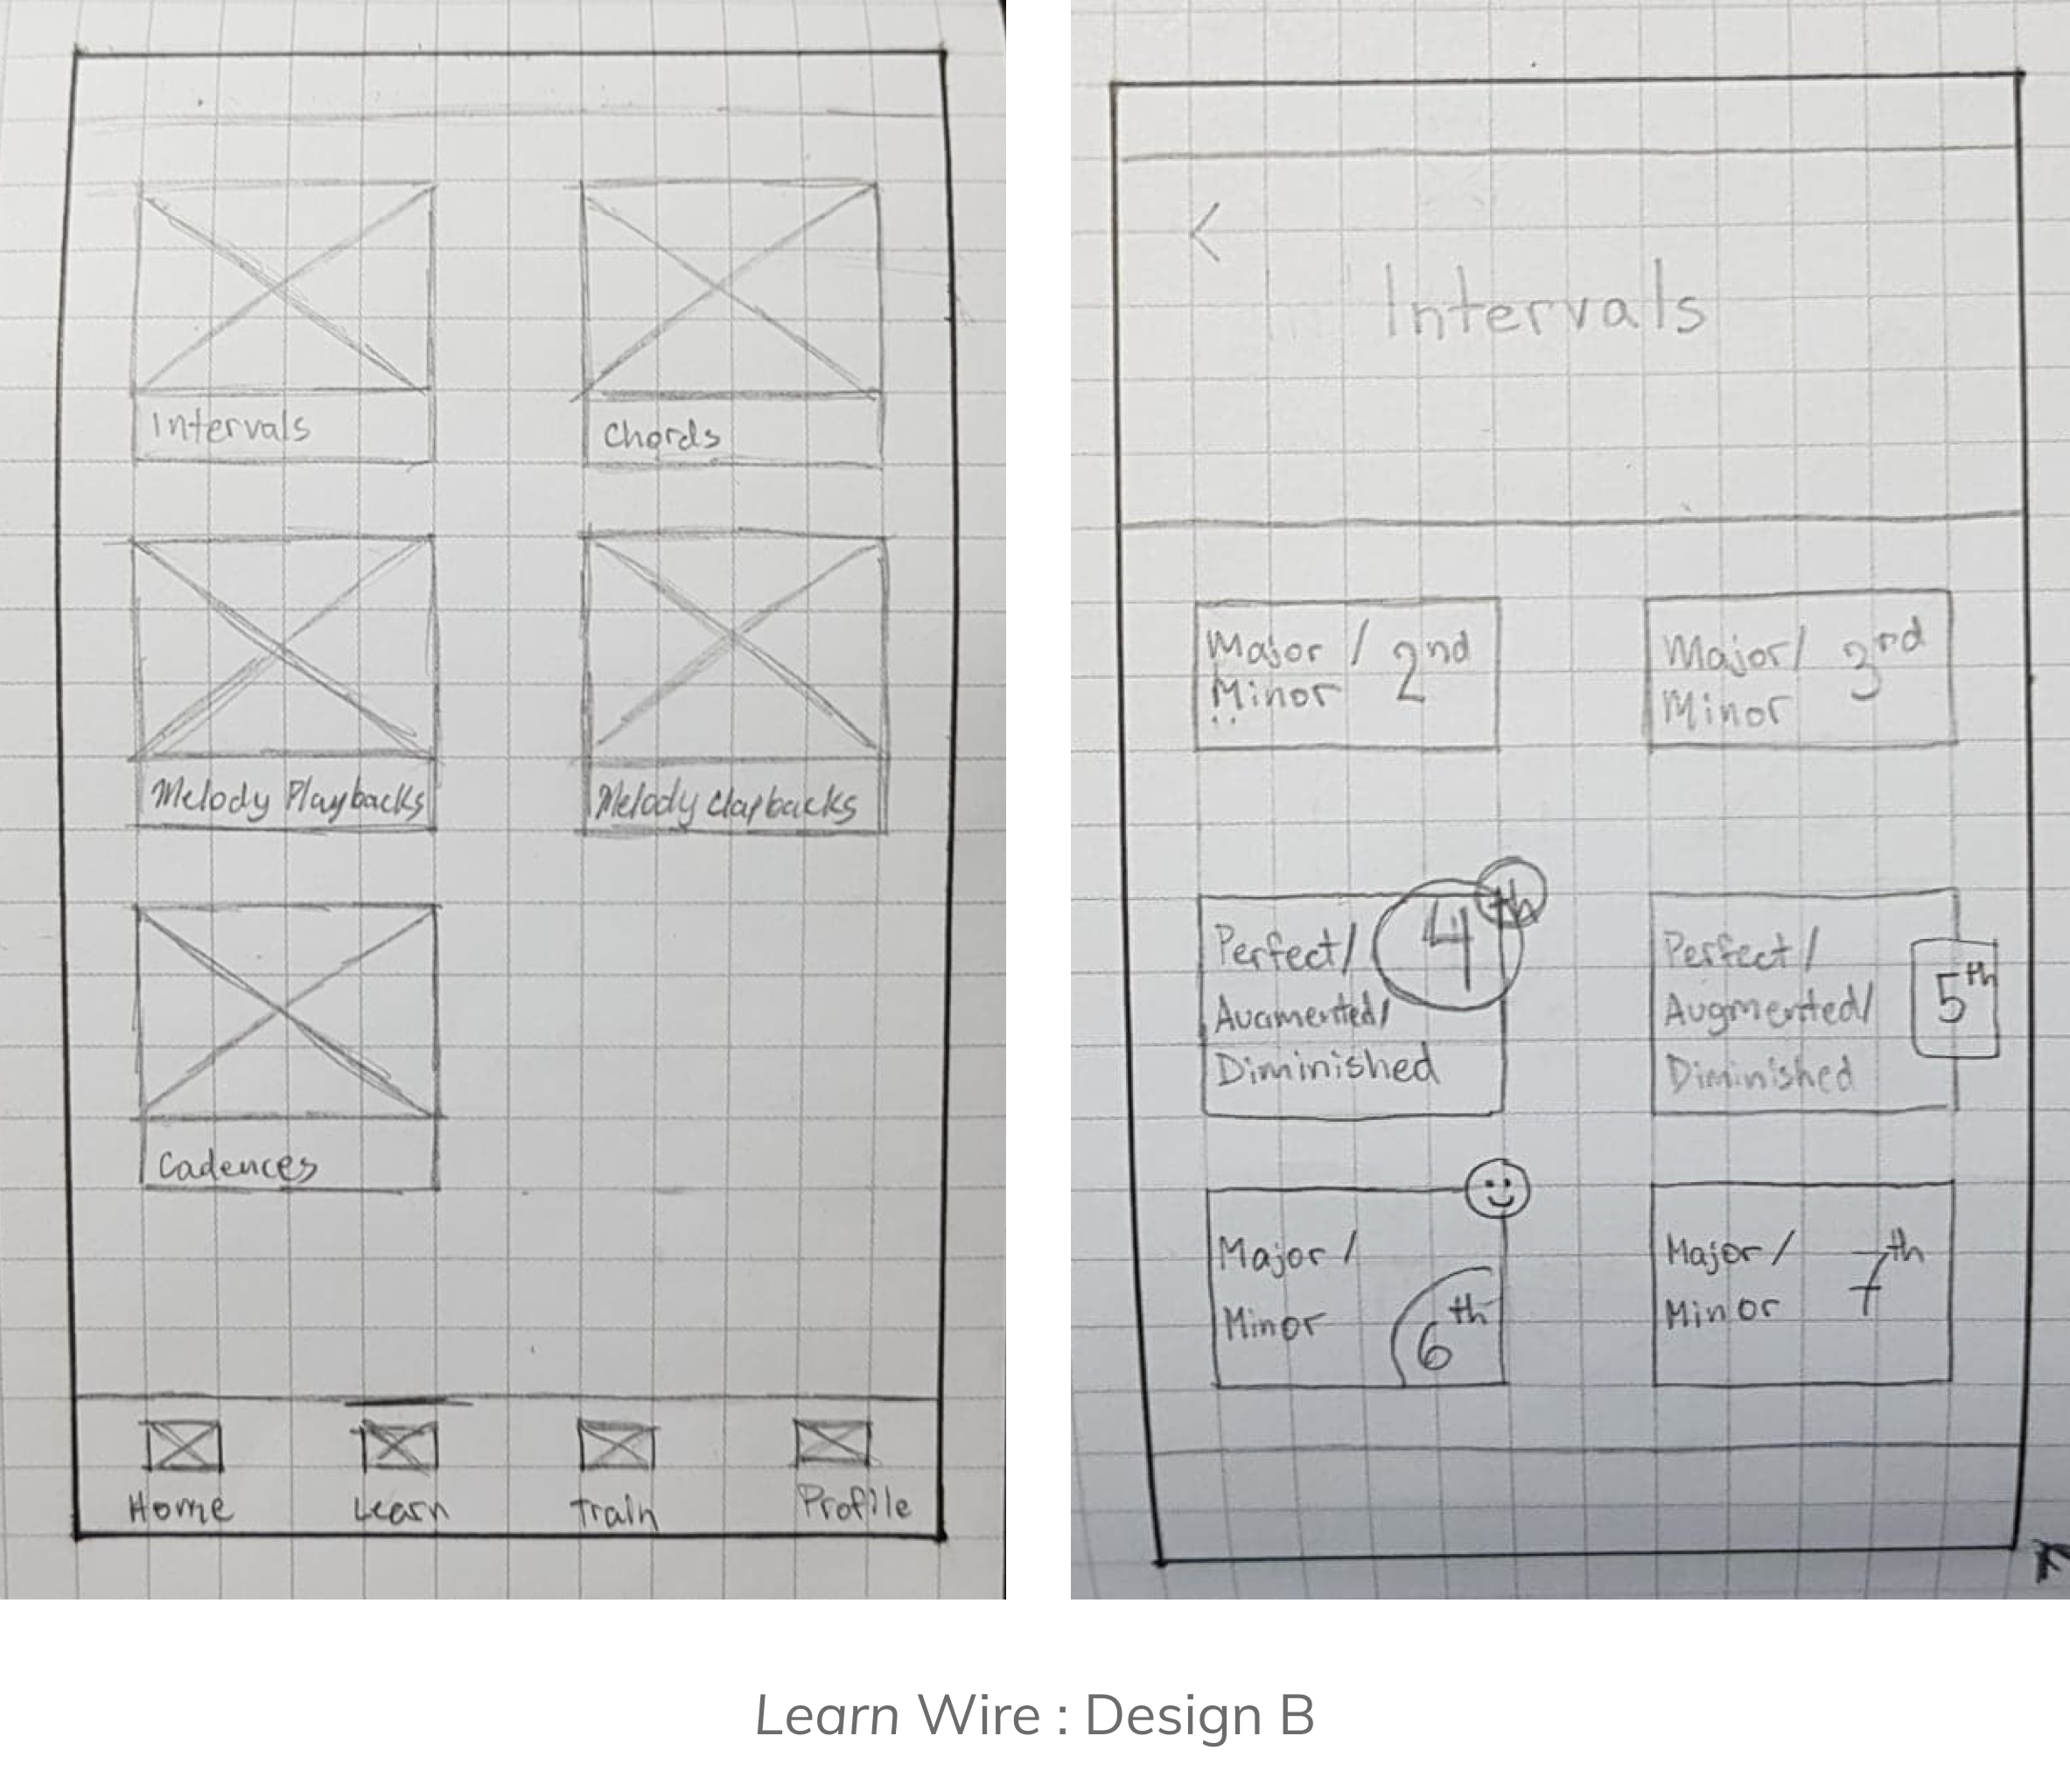 Intervals
Chords
Melody Playbacks
Melody Clapbacks
Cadences
Home
Learn
Train
Profile
<
Intervals
Major / 2nd
Minor
Major/ 3rd
Minor
Perfect/ 4th
Augmented/
Diminished
Perfect/
Augmented/ 5th
Diminished
Major /
Minor 6th
Major / 7th
Minor
Learn Wire : Design B